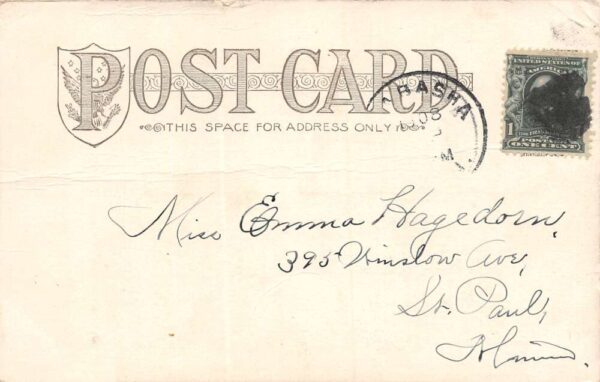 POST CARD
THIS SPACE FOR ADDRESS ONLY
ABASHA
UNITED STATES OF AMERICA
1
POSTAGE
ONE CENT
Miss Emma Hagedorn,
395 Winslow Ave,
St. Paul,
Minn.